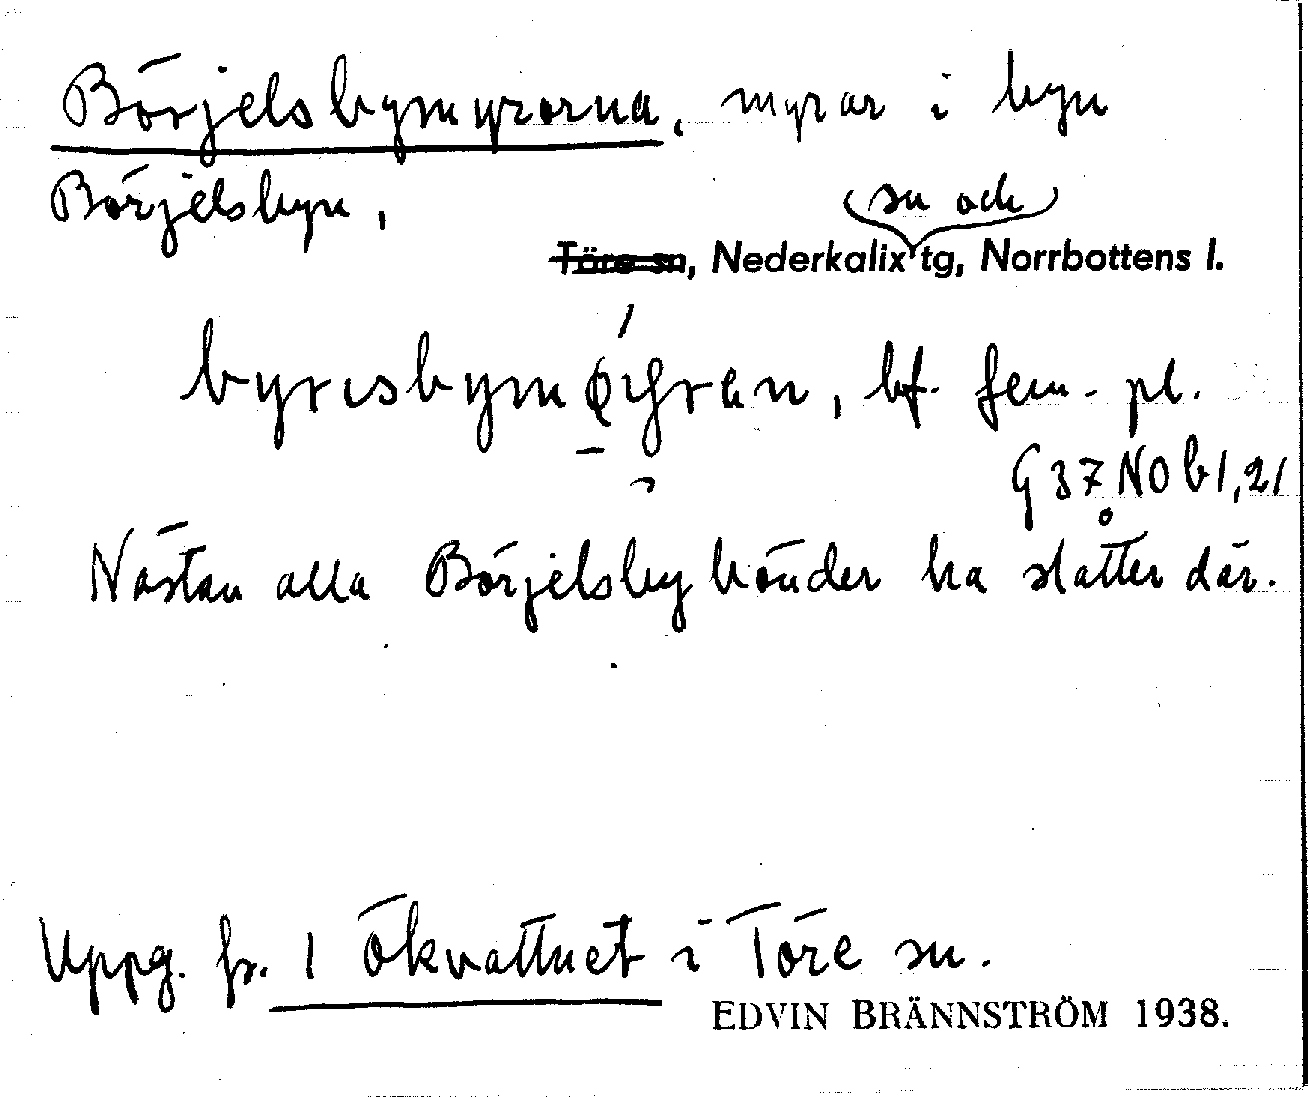 Börjelsbymyrorna, myrar i byn
Börjelsbyn,
(sn och)
Töre sn, Nederkalix tg, Norrbottens l.
bf. fem. pl.
G 37 NO b1,21
Nästan alla Börjelsbybönder ha slåtter där.
Uppg. fr. 1 Ökvattnet i Töre sn.
EDVIN BRÄNNSTRÖM 1938.